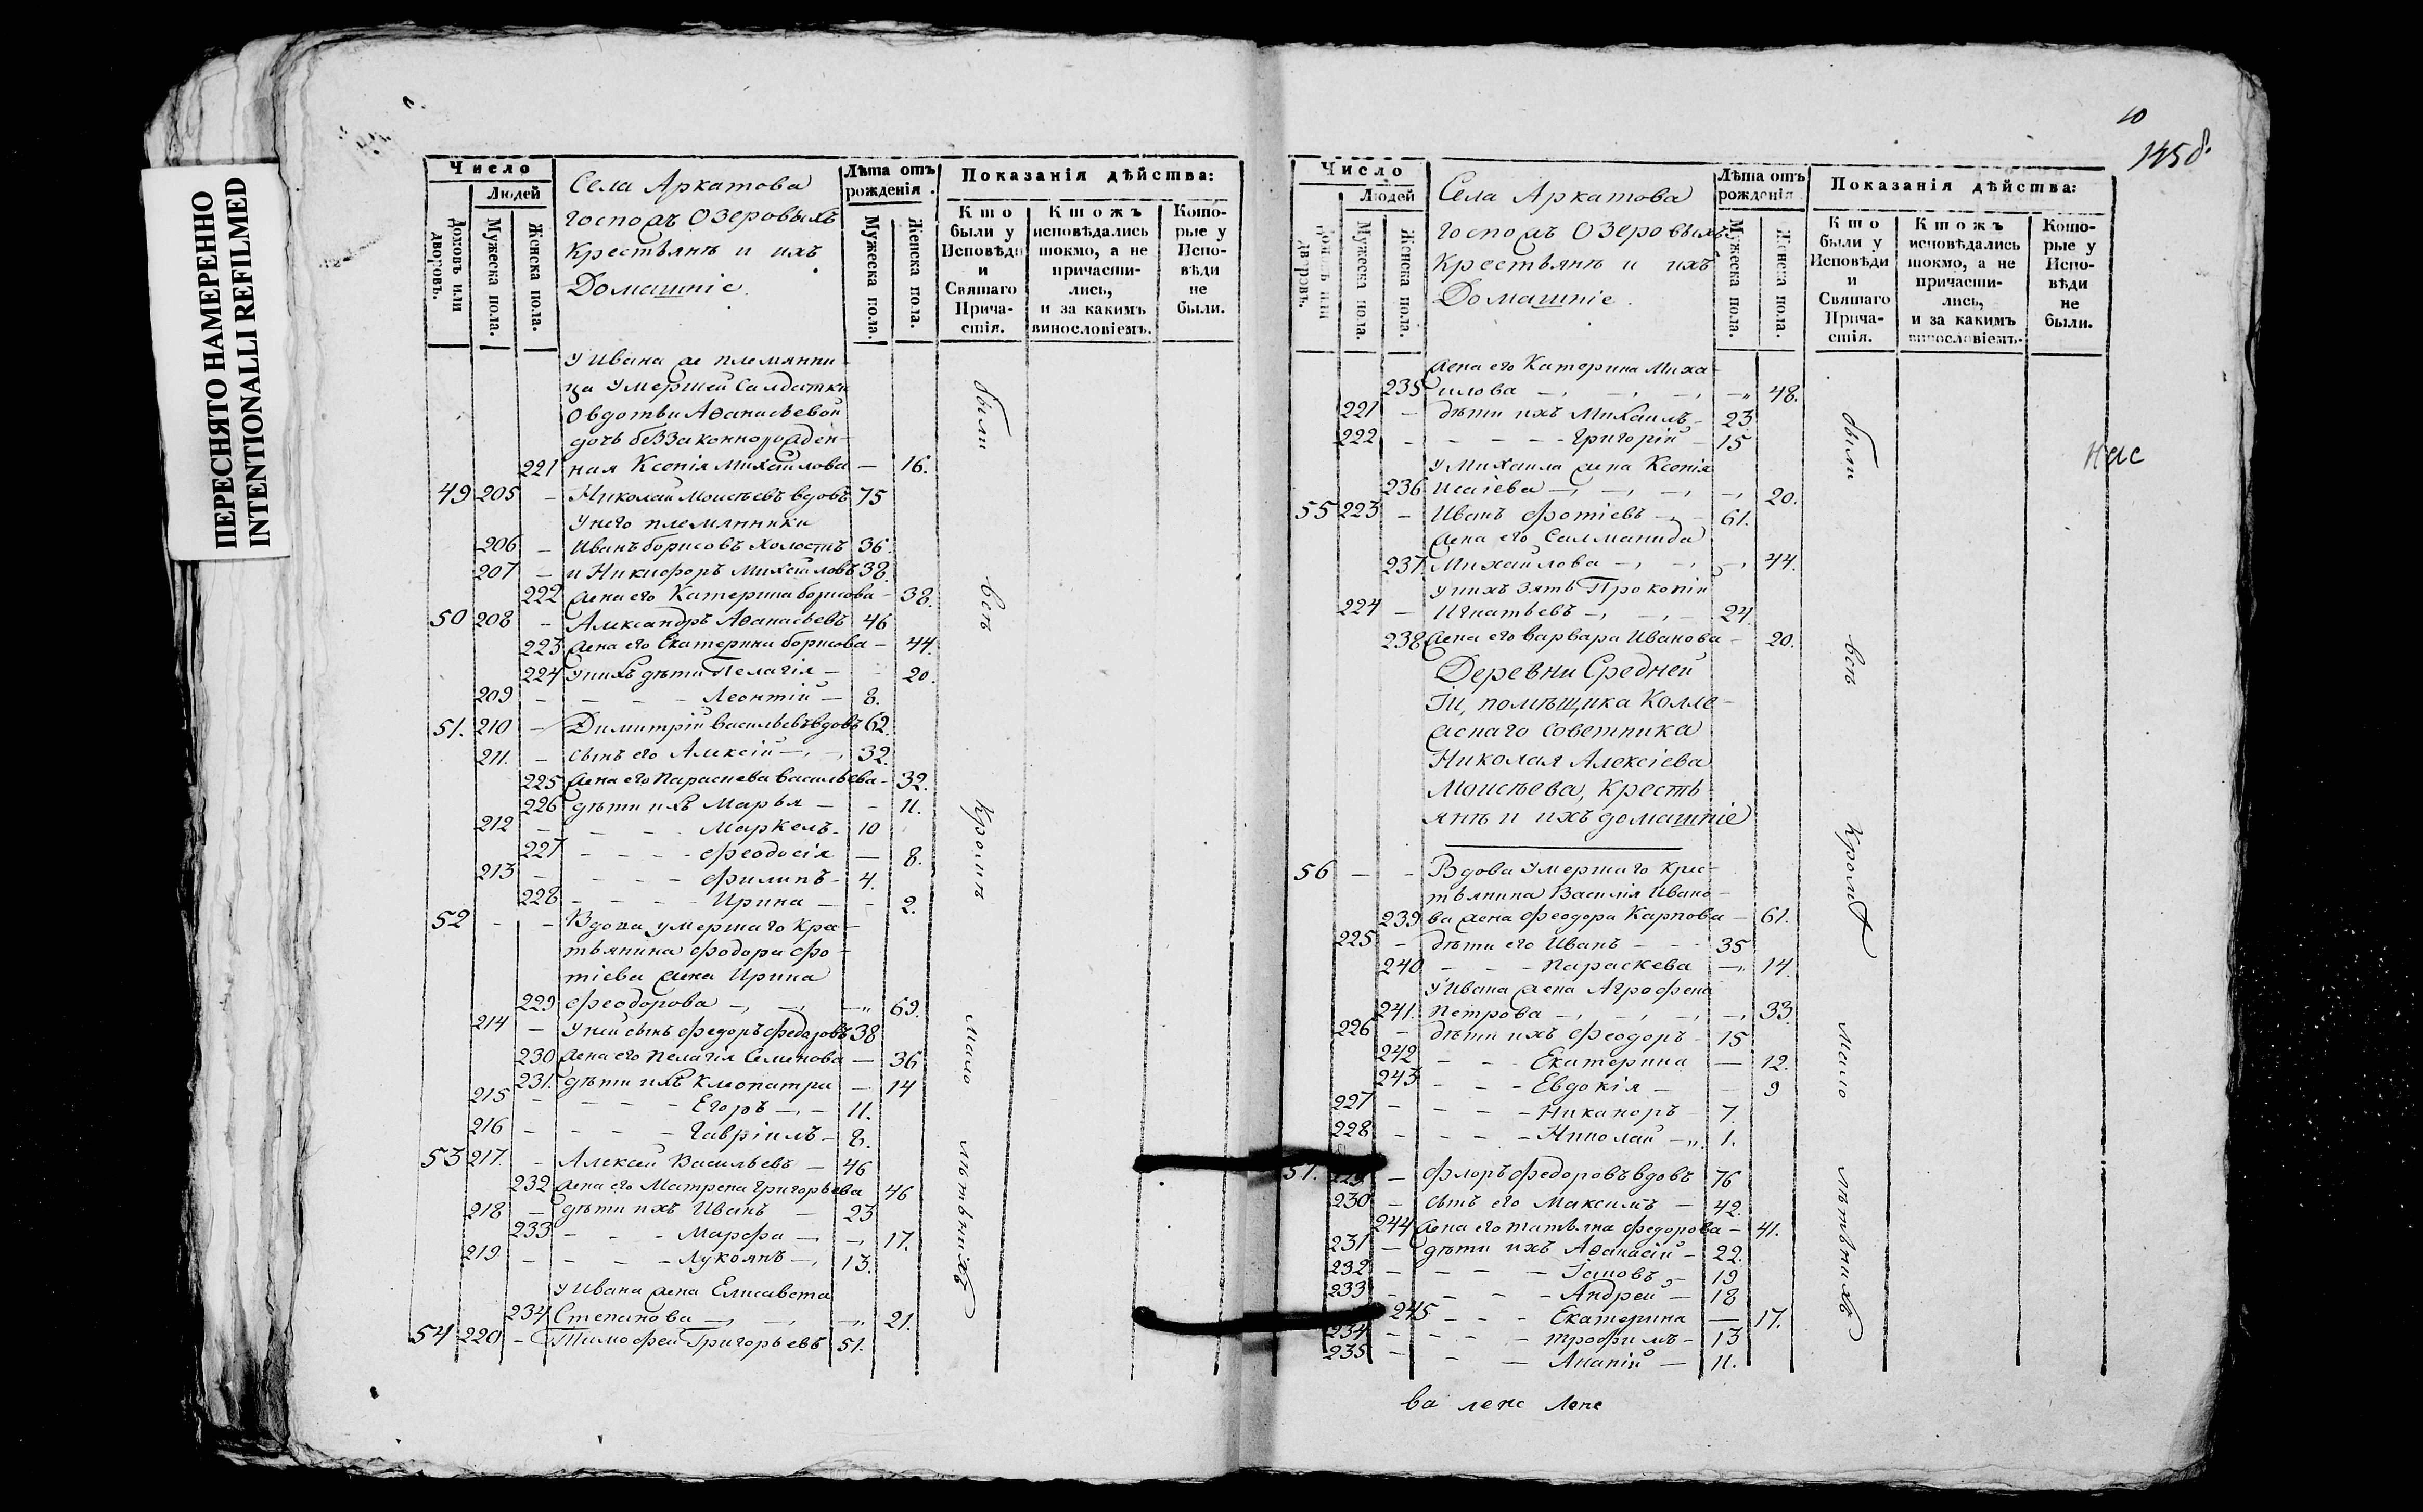 ПЕРЕСНЯТО НАМЕРЕННО
INTENTIONALLI REFILMED
Число
Людей
Домовъ или дворовъ.
Мужеска пола.
Женска пола.
Села Аркатова
господъ Озеровыхъ
крестьянъ и ихъ
Домашніе.
Лѣта отъ рожденія.
Мужеска пола.
Женска пола.
Показанія дѣйства:
Кто были у Исповѣди и Святаго Прича-стія.
Ктожъ исповѣдались токмо, а не причасти-лись, и за какимъ винословіемъ.
Кото-рые у Испо-вѣди не были.
У Ивана же племянни-
ца умершей Салдатки
Овдотьи Аѳанасьевой
дочь беззаконнорожден-
221 ная Ксенія Михайлова — 16.
49 205 – Николай Моисѣевъ вдовъ 75
У него племянники
206 – Иванъ борисовъ холостъ 36.
207 – и Никифоръ Михайловъ 38.
222 жена его Катерина борисова – 38.
50 208 – Александръ Аѳанасьевъ 46
223 жена его Екатерина борисова – 44.
224 у нихъ дѣти Пелагія – 20.
209 – – – – Леонтій – 8.
51. 210 – Димитрій васильевъ вдовъ 62.
211. – сынъ его Алексій – 32.
225 жена его Параскева васильева – 32.
226 дѣти ихъ Марья – – 11.
212 – – – – Маркелъ – 10
227 – – – – Феодосія – 8.
213 – – – – Филипъ – 4.
228 – – – – Ирина – – 2.
52 – – Вдова умершаго крес-
тьянина Фодора Фо-
тіева жена Ирина
229 Феодорова – – – 69.
214 – У ней сынъ Федоръ Федоровъ 38
230 жена его Пелагія Семенова – 36
231. дѣти ихъ Клеопатра – 14
215 – – – – Егоръ – – 11.
216 – – – – Гавріилъ – 8.
53 217. – Алексей Васильевъ – 46
232 жена его Матрена Григорьева 46
218 – дѣти ихъ Иванъ – 23
233 – – – Марфа – – 17.
219 – – – – Лукоянъ – 13.
У Ивана жена Елисавета
234 Степанова – – – 21.
54 220 – Тимофей Григорьевъ 51.
были
всѣ
Кромѣ
мало
лѣтнихъ
10
1458.
Число
Людей
Домовъ или дворовъ.
Мужеска пола.
Женска пола.
Села Аркатова
господъ Озеровыхъ
крестьянъ и ихъ
Домашніе.
Лѣта отъ рожденія.
Мужеска пола.
Женска пола.
Показанія дѣйства:
Кто были у Исповѣди и Святаго Прича-стія.
Ктожъ исповѣдались токмо, а не причасти-лись, и за какимъ винословіемъ.
Кото-рые у Испо-вѣди не были.
жена его Катерина Миха-
235 илова – – – – 48.
221 – дѣти ихъ Михаилъ – 23.
222 – – – – Григорій – 15
у Михаила жена Ксенія
236 Исаіева – – – – 20.
55 223 – Иванъ Фотіевъ – – 61.
жена его Салманида
237. Михайлова – – – 44.
у нихъ зять Прокопій
224 – Игнатьевъ – – – 24.
238 жена его варвара Иванова – 20.
Деревни Средней
Іи, помѣщика Колле-
жскаго советника
Николая Алексіева
Моисѣева, Кресть-
янъ и ихъ домашніе
56 – – Вдова умершаго крес-
тьянина Василія Ивано-
239 ва жена Феодора Карпова – 61.
225 – дѣти его Иванъ – – 35
240 – – – Параскева – 14.
у Ивана жена Агрофена
241. Петрова – – – – 33.
226 – дѣти ихъ Феодоръ – 15
242 – – – Екатерина – 12.
243 – – – Евдокія – 9
227 – – – – Никаноръ – 7.
228 – – – – Николай – 1.
57. 229 – Флоръ Федоровъ вдовъ 76
230 – сынъ его Максимъ – 42.
244 жена его татьяна Федорова – 41.
231 – дѣти ихъ Аѳанасій – 22.
232 – – – – Іаковъ – 19
233 – – – – Андрей – 18
245 – – – Екатерина – 17.
234 – – – – трофимъ – 13
235 – – – Ананій – 11.
были
всѣ
Кромѣ
мало
лѣтнихъ
нас